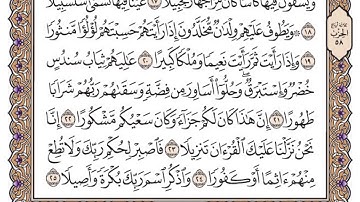 وَيُسْقَوْنَ فِيهَا كَأْسًا كَانَ مِزَاجُهَا زَنجَبِيلًا ١٧ عَيْنًا فِيهَا تُسَمَّىٰ سَلْسَبِيلًا
١٨ وَيَطُوفُ عَلَيْهِمْ وِلْدَٰنٌ مُّخَلَّدُونَ إِذَا رَأَيْتَهُمْ حَسِبْتَهُمْ لُؤْلُؤًا مَّنثُورًا
١٩ وَإِذَا رَأَيْتَ ثَمَّ رَأَيْتَ نَعِيمًا وَمُلْكًا كَبِيرًا ٢٠ عَٰلِيَهُمْ ثِيَابُ سُندُسٍ
خُضْرٌ وَإِسْتَبْرَقٌ وَحُلُّوٓا۟ أَسَاوِرَ مِن فِضَّةٍ وَسَقَىٰهُمْ رَبُّهُمْ شَرَابًا
طَهُورًا ٢١ إِنَّ هَٰذَا كَانَ لَكُمْ جَزَآءً وَكَانَ سَعْيُكُم مَّشْكُورًا ٢٢ إِنَّا
نَحْنُ نَزَّلْنَا عَلَيْكَ ٱلْقُرْءَانَ تَنزِيلًا ٢٣ فَٱصْبِرْ لِحُكْمِ رَبِّكَ وَلَا تُطِعْ
مِنْهُمْ ءَاثِمًا أَوْ كَفُورًا ٢٤ وَٱذْكُرِ ٱسْمَ رَبِّكَ بُكْرَةً وَأَصِيلًا ٢٥
الحزب
٥٨